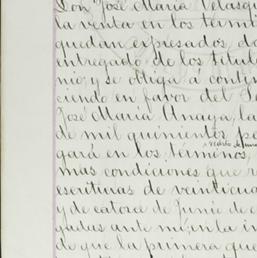 Don José María Velasqu
la venta en los térmi
quedan espresados, da
entregado de los títulos
nio, y se obliga á contin
ciendo en favor del Se
José María Unaga, la
de mil quinientos pe
gará en los términos,
mas condiciones que r
escrituras de veinticua
y de catorce de Junio de c
gadas ante mí, i la in
de que la primera que